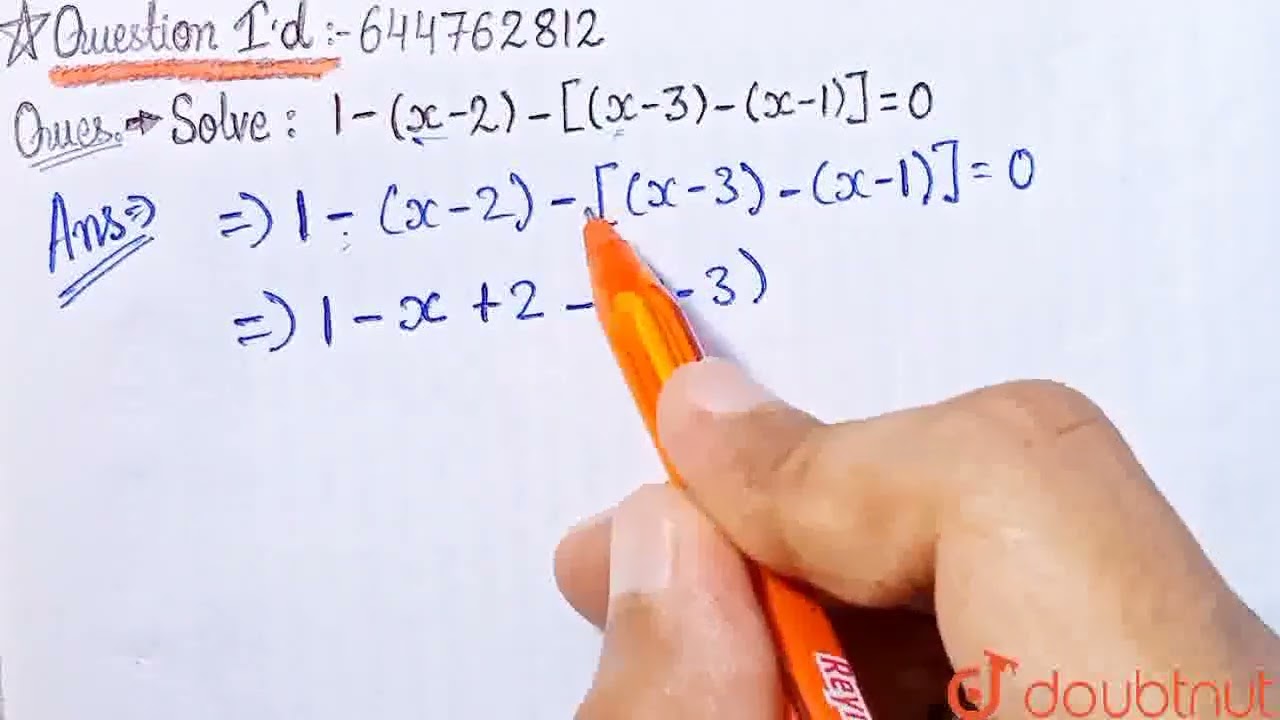 ☆Question I'd:-644762812
Ques.→Solve: 1-(x-2)-[(x-3)-(x-1)]=0
Ans⇒ ⇒) 1-(x-2)-[(x-3)-(x-1)]=0
⇒) 1-x+2- -3)
Rey
doubtnut